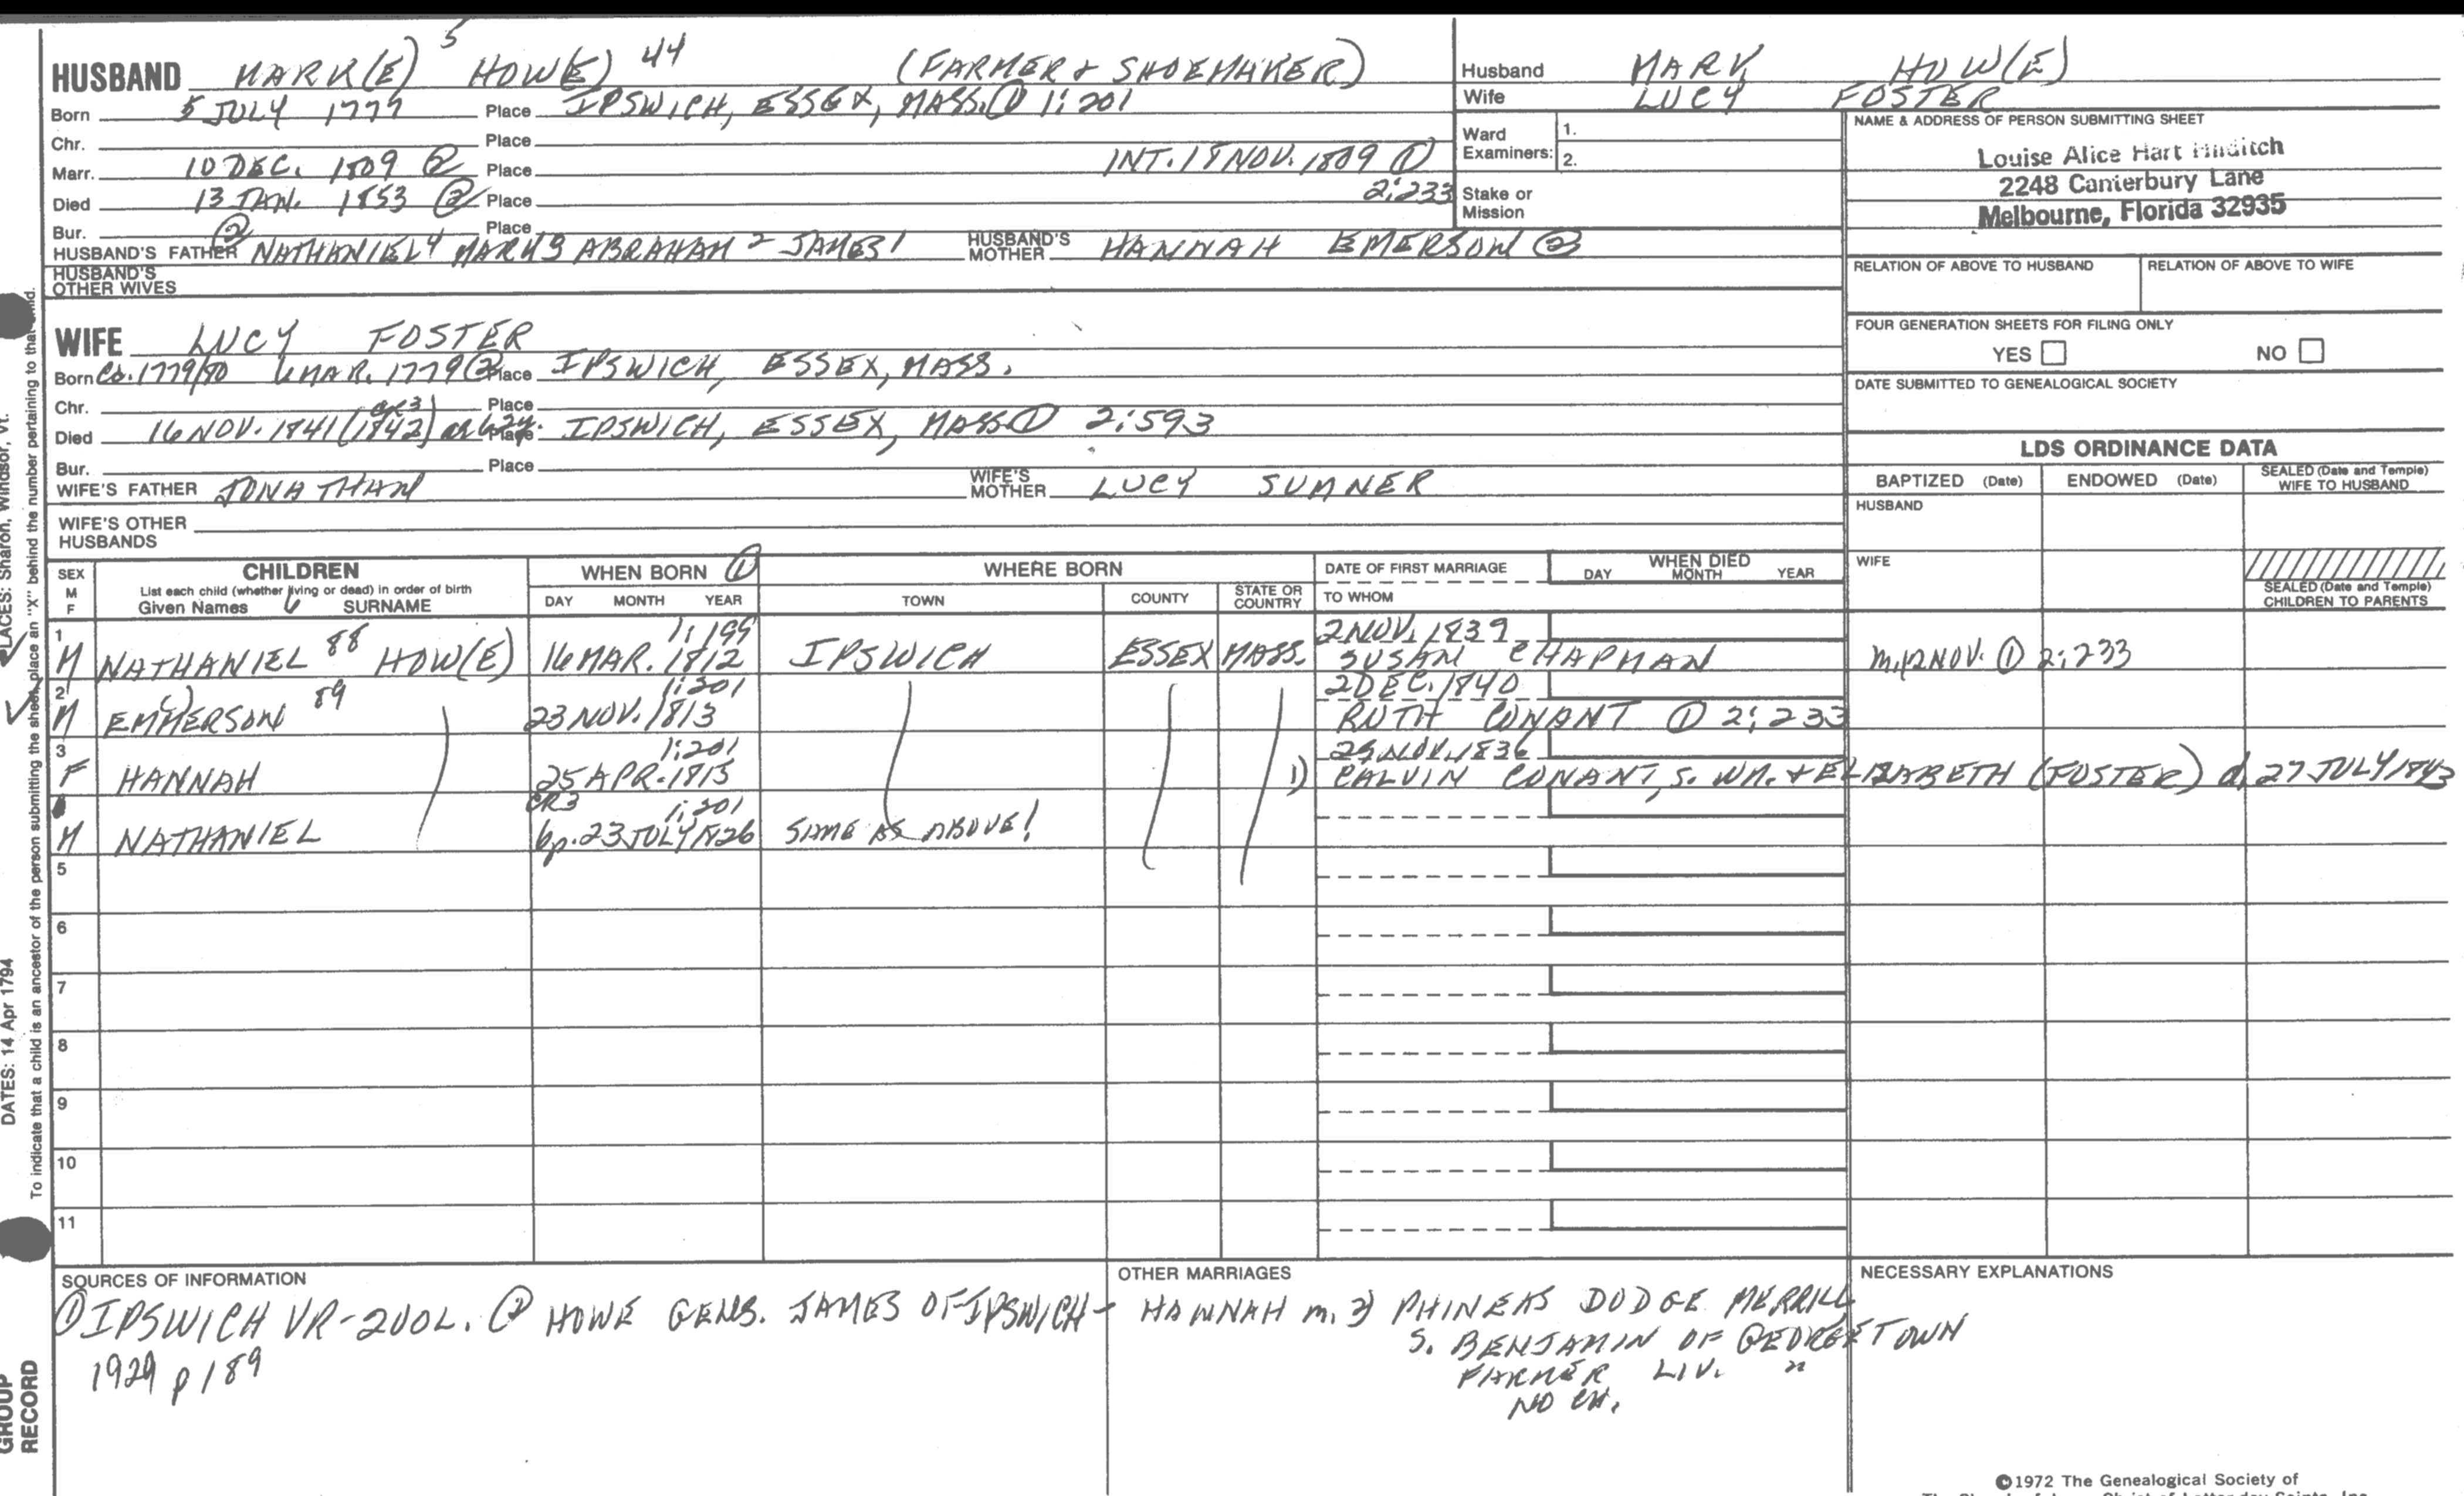 HUSBAND MARK(E) 5 HOW(E) 44 (FARMER & SHOEMAKER)
Born 5 JULY 1777 Place IPSWICH, ESSEX, MASS. ① 1:201
Chr. Place
Marr. 10 DEC. 1809 ② Place INT. 18 NOV. 1809 ①
Died 13 JAN. 1853 ② Place 2:233
Bur. ② Place
HUSBAND'S FATHER NATHANIEL 4 MARK 3 ABRAHAM 2 JAMES 1 HUSBAND'S MOTHER HANNAH EMERSON ②
HUSBAND'S OTHER WIVES
Husband MARK HOW(E)
Wife LUCY FOSTER
Ward Examiners: 1.
2.
Stake or Mission
NAME & ADDRESS OF PERSON SUBMITTING SHEET
Louise Alice Hart
2248 Canterbury Lane
Melbourne, Florida 32935
RELATION OF ABOVE TO HUSBAND RELATION OF ABOVE TO WIFE
FOUR GENERATION SHEETS FOR FILING ONLY
YES NO
DATE SUBMITTED TO GENEALOGICAL SOCIETY
WIFE LUCY FOSTER
Born Ca. 1779/80 MAR. 1779 ② Place IPSWICH, ESSEX, MASS.
Chr. Place
Died 16 NOV. 1841 (1842) Place IPSWICH, ESSEX, MASS ① 2:593
Bur. Place
WIFE'S FATHER JONATHAN WIFE'S MOTHER LUCY SUMNER
WIFE'S OTHER HUSBANDS
LDS ORDINANCE DATA
BAPTIZED (Date) ENDOWED (Date) SEALED (Date and Temple) WIFE TO HUSBAND
HUSBAND
WIFE
SEALED (Date and Temple) CHILDREN TO PARENTS
SEX M F
CHILDREN
List each child (whether living or dead) in order of birth
Given Names SURNAME
WHEN BORN ①
DAY MONTH YEAR
WHERE BORN
TOWN COUNTY STATE OR COUNTRY
DATE OF FIRST MARRIAGE
TO WHOM
WHEN DIED
DAY MONTH YEAR
1 1:199 2 NOV. 1839
M NATHANIEL 88 HOW(E) 16 MAR. 1812 IPSWICH ESSEX MASS. SUSAN CHAPMAN m. 12 NOV. ① 2:233
2 1:201 2 DEC. 1840
M EMMERSON 89 23 NOV. 1813 RUTH CONANT ① 2:233
3 1:201 NOV. 1836
F HANNAH 25 APR. 1815 1) CALVIN CONANT, S. WM. & ELIZABETH (FOSTER) d. 27 JULY 1843
CR3 1:201
M NATHANIEL bp. 23 JULY 1826 SAME AS ABOVE!
5
6
7
8
9
10
11
SOURCES OF INFORMATION
① IPSWICH VR-2 VOL. ② HOWE GENS. JAMES OF IPSWICH-
1929 p 189
OTHER MARRIAGES
HANNAH m. 2) PHINEAS DODGE MERRILL
S. BENJAMIN OF GEORGETOWN
FARMER LIV. "
NO CH.
NECESSARY EXPLANATIONS
©1972 The Genealogical Society of
PLACES: Sharon, Windsor, Vt.
DATES: 14 Apr 1794
To indicate that a child is an ancestor of the person submitting the sheet, place an "X" behind the number pertaining to that child.
GROUP
RECORD